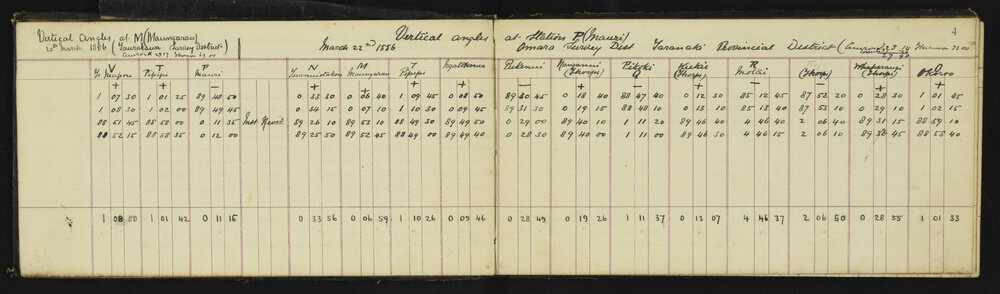 Vertical Angles at M (Maungarau)
20th March 1886 (Taurakawa Survey District)
Vertical angles at Station P (Mauri)
March 22nd 1886 Omara Survey Dist Taranaki Provincial District
4
V T P N M T
Mapou Pipipi Mauri Maungarau Pipipi Ngatimaru Pukenui Q R O
+ + - + + + + - + - + - - + +
1 07 30 1 01 25 89 48 50 0 33 30 0 06 40 1 09 45 0 08 50 89 30 45 0 18 40 88 47 40 0 12 30 85 12 45 87 52 20 0 28 30 1 01 45
1 08 30 1 02 00 89 49 45 0 34 15 0 07 10 1 10 30 0 09 45 89 31 30 0 19 15 88 48 10 0 13 10 85 13 40 87 53 10 0 29 10 1 02 15
88 51 45 88 58 00 0 11 35 89 26 10 89 53 10 88 49 30 89 49 50 0 29 00 89 40 10 1 11 20 89 46 40 4 46 40 2 06 40 89 31 15 88 59 10
88 52 15 88 58 35 0 12 00 89 25 50 89 52 45 88 49 00 89 49 40 0 28 30 89 40 00 1 11 00 89 46 30 4 46 15 2 06 10 89 30 45 88 58 40
1 08 00 1 01 42 0 11 15 0 33 56 0 06 59 1 10 26 0 09 46 0 28 49 0 19 26 1 11 37 0 13 07 4 46 37 2 06 50 0 28 55 1 01 33